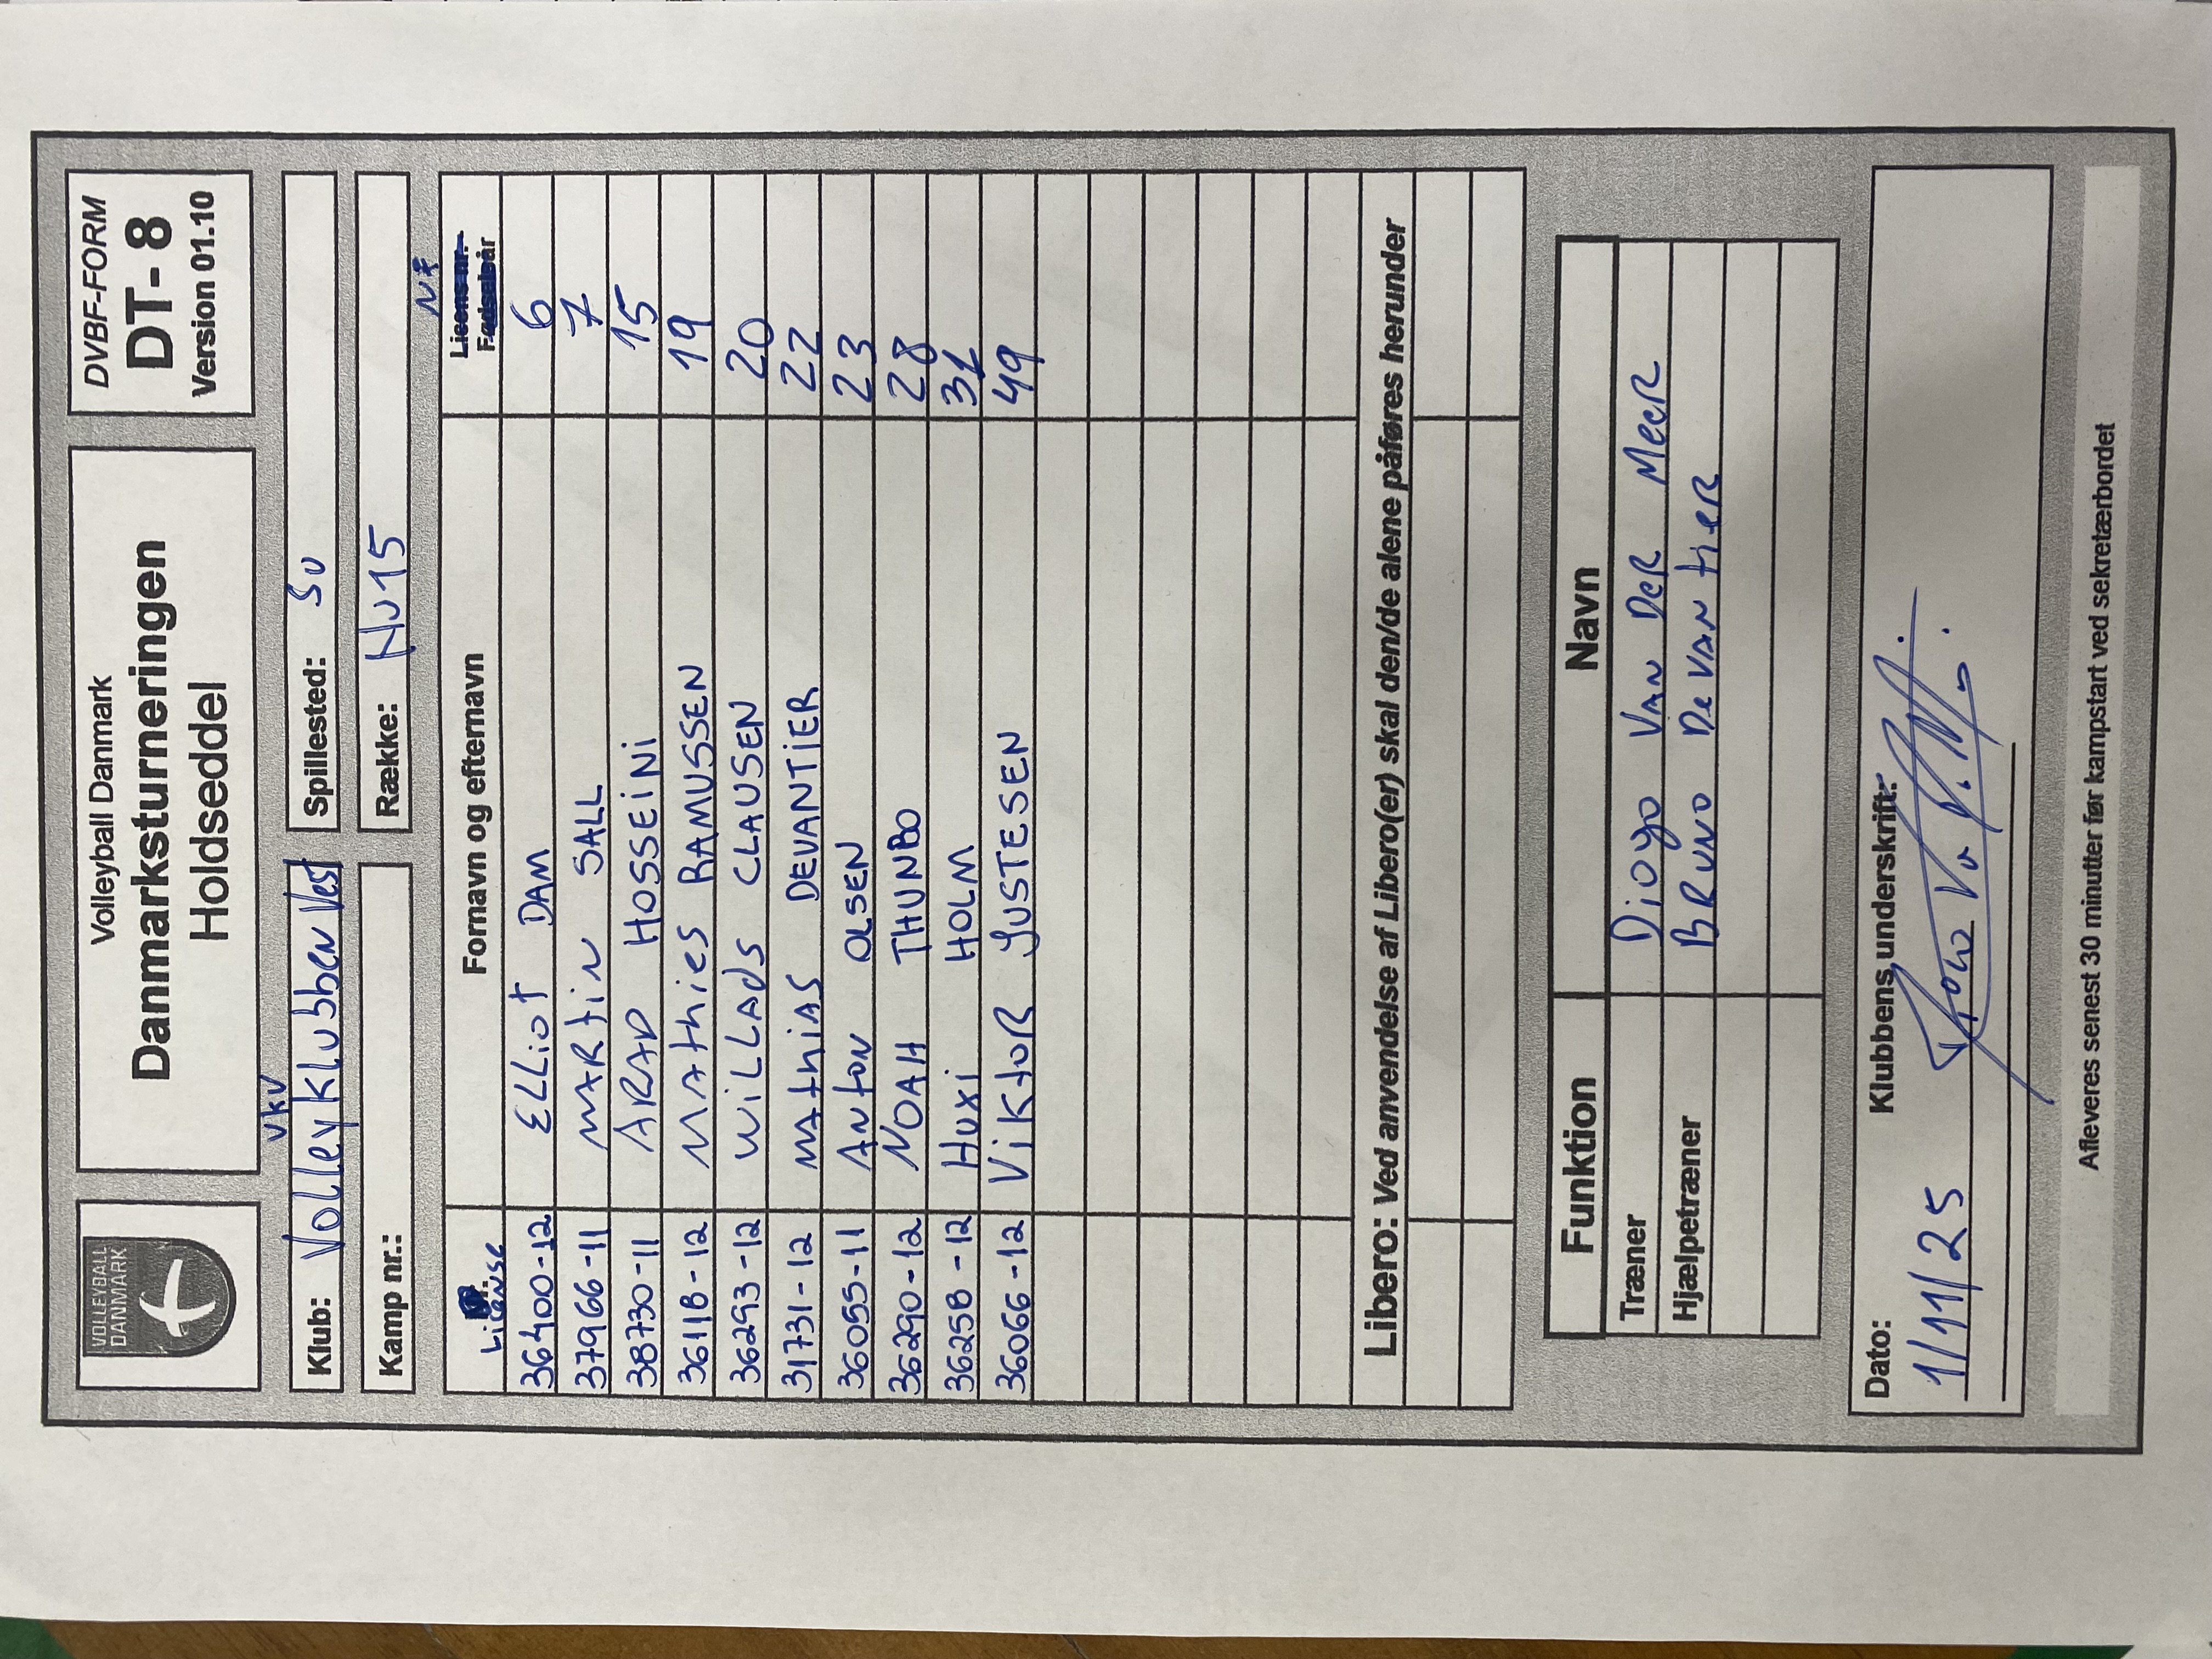 VOLLEYBALL
DANMARK
Volleyball Danmark
Danmarksturneringen
Holdseddel
DVBF-FORM
DT- 8
Version 01.10
VKV
Klub: Volleyklubben Vest
Spillested: SU
Kamp nr.:
Række: NU15
Nr.
License
Fornavn og efternavn
Licens nr.
Fødselsår
36400-12 ELLiOT DAM 6
37966-11 MARTiN SALL 7
38730-11 ARAD HOSSEiNi 15
36118-12 MAthiES RAMUSSEN 19
36293-12 WiLLADS CLAUSEN 20
31731-12 MAthiAS DEVANTiER 22
36055-11 ANtON OLSEN 23
36290-12 NOAH THUNBO 28
36258-12 HUXi HOLM 31
36066-12 ViKtOR JUSTESEN 49
Libero: Ved anvendelse af Libero(er) skal den/de alene påføres herunder
Funktion Navn
Træner Dioyo VAN DER MEER
Hjælpetræner BRUNO DeVANtieR
Dato: Klubbens underskrift:
1/11/25
Afleveres senest 30 minutter før kampstart ved sekretærbordet